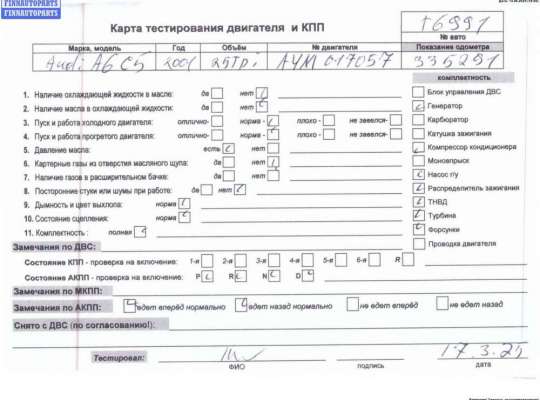 FINNAUTOPARTS
FINNAUTOPARTS
Карта тестирования двигателя и КПП
т6991
№ авто
Марка, модель Год Объём № двигателя Показания одометра
Audi A6 C5 2001 2.5TDi AYM 017057 335291
комплектность
1. Наличие охлаждающей жидкости в масле: да нет
2. Наличие масла в охлаждающей жидкости: да нет
3. Пуск и работа холодного двигателя: отлично- норма - плохо - не завелся-
4. Пуск и работа прогретого двигателя: отлично- норма - плохо - не завелся-
5. Давление масла: есть нет
6. Картерные газы из отверстия масляного щупа: да нет
7. Наличие газов в расширительном бачке: да нет
8. Посторонние стуки или шумы при работе: да нет
9. Дымность и цвет выхлопа: норма
10. Состояние сцепления: норма
11. Комплектность : полная
Блок управления ДВС
Генератор
Карбюратор
Катушка зажигания
Компрессор кондиционера
Моновпрыск
Насос г/у
Распределитель зажигания
ТНВД
Турбина
Форсунки
Проводка двигателя
Замечания по ДВС:
Состояние КПП - проверка на включение: 1-я 2-я 3-я 4-я 5-я 6-я R
Состояние АКПП - проверка на включение: P R N D
Замечания по МКПП:
Замечания по АКПП: едет вперёд нормально едет назад нормально не едет вперёд не едет назад
Снято с ДВС (по согласованию!):
Тестировал: 17.3.25
ФИО подпись дата